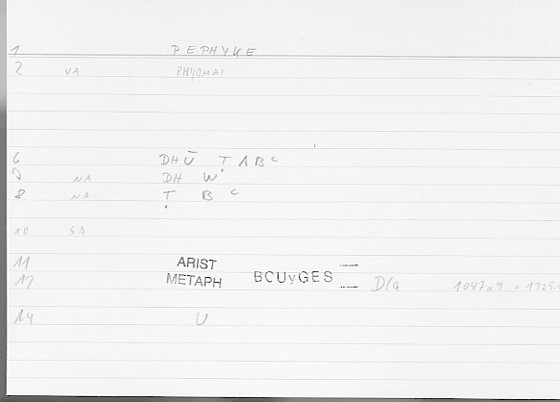 1 PEPHYKE
2 VA PHYOMAI
6 DHŪ T A B C
7 NA DH W
8 NA T B C
10 SA
11 ARIST
12 METAPH BCUyGES D/G
14 U